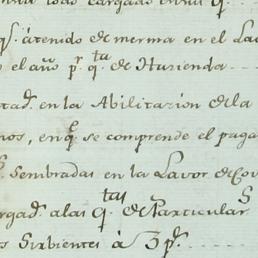 todo cargado en mi q.
qs. atenido de merma en el La
o el año pr. qta. de Hazienda
tad. en la Abilitazion de la
nos, en q. se comprende el paga
s. Sembradas en la Lavor de Co
rgads. a las qtas. de Particulars
s Sirbientes á 3 ps.